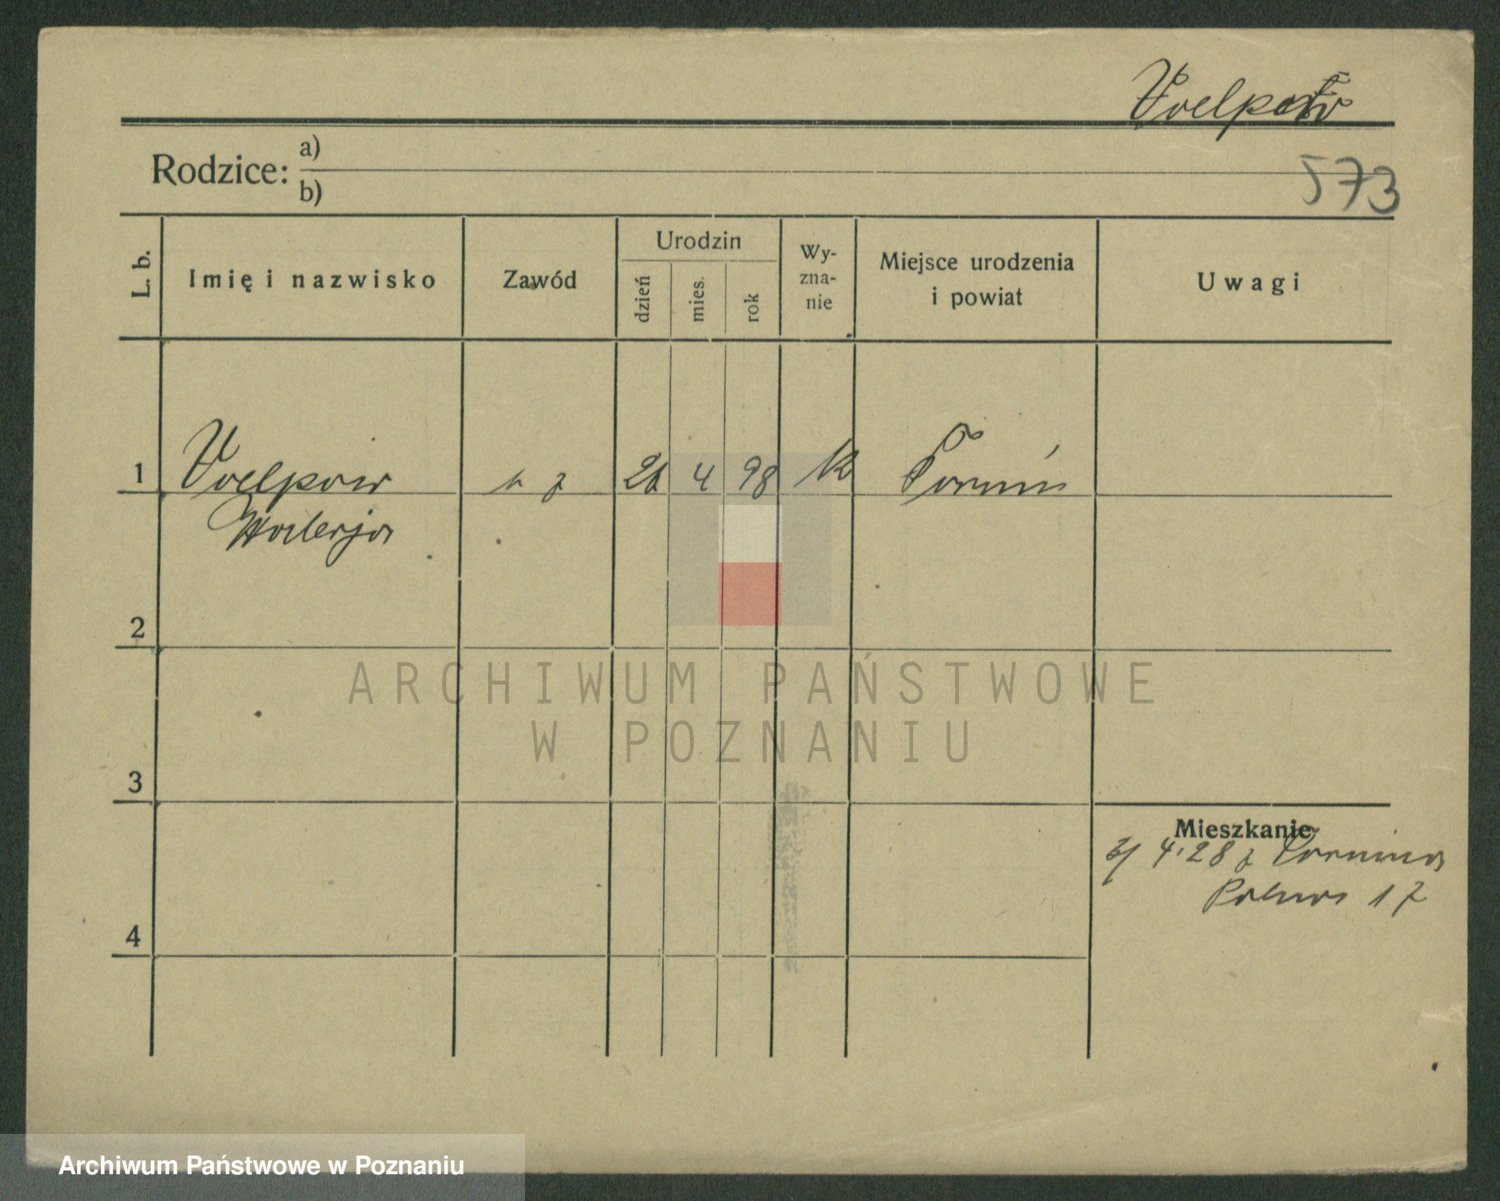 Voelpel
573
Rodzice: a)
b)
L. b.
Imię i nazwisko
Zawód
Urodzin
dzień
mies.
rok
Wy-
zna-
nie
Miejsce urodzenia
i powiat
Uwagi
1
4 98
Toruń
Walerja
2
ARCHIWUM PAŃSTWOWE
W POZNANIU
3
Mieszkanie
4.28 z Torunia
17
4
Archiwum Państwowe w Poznaniu